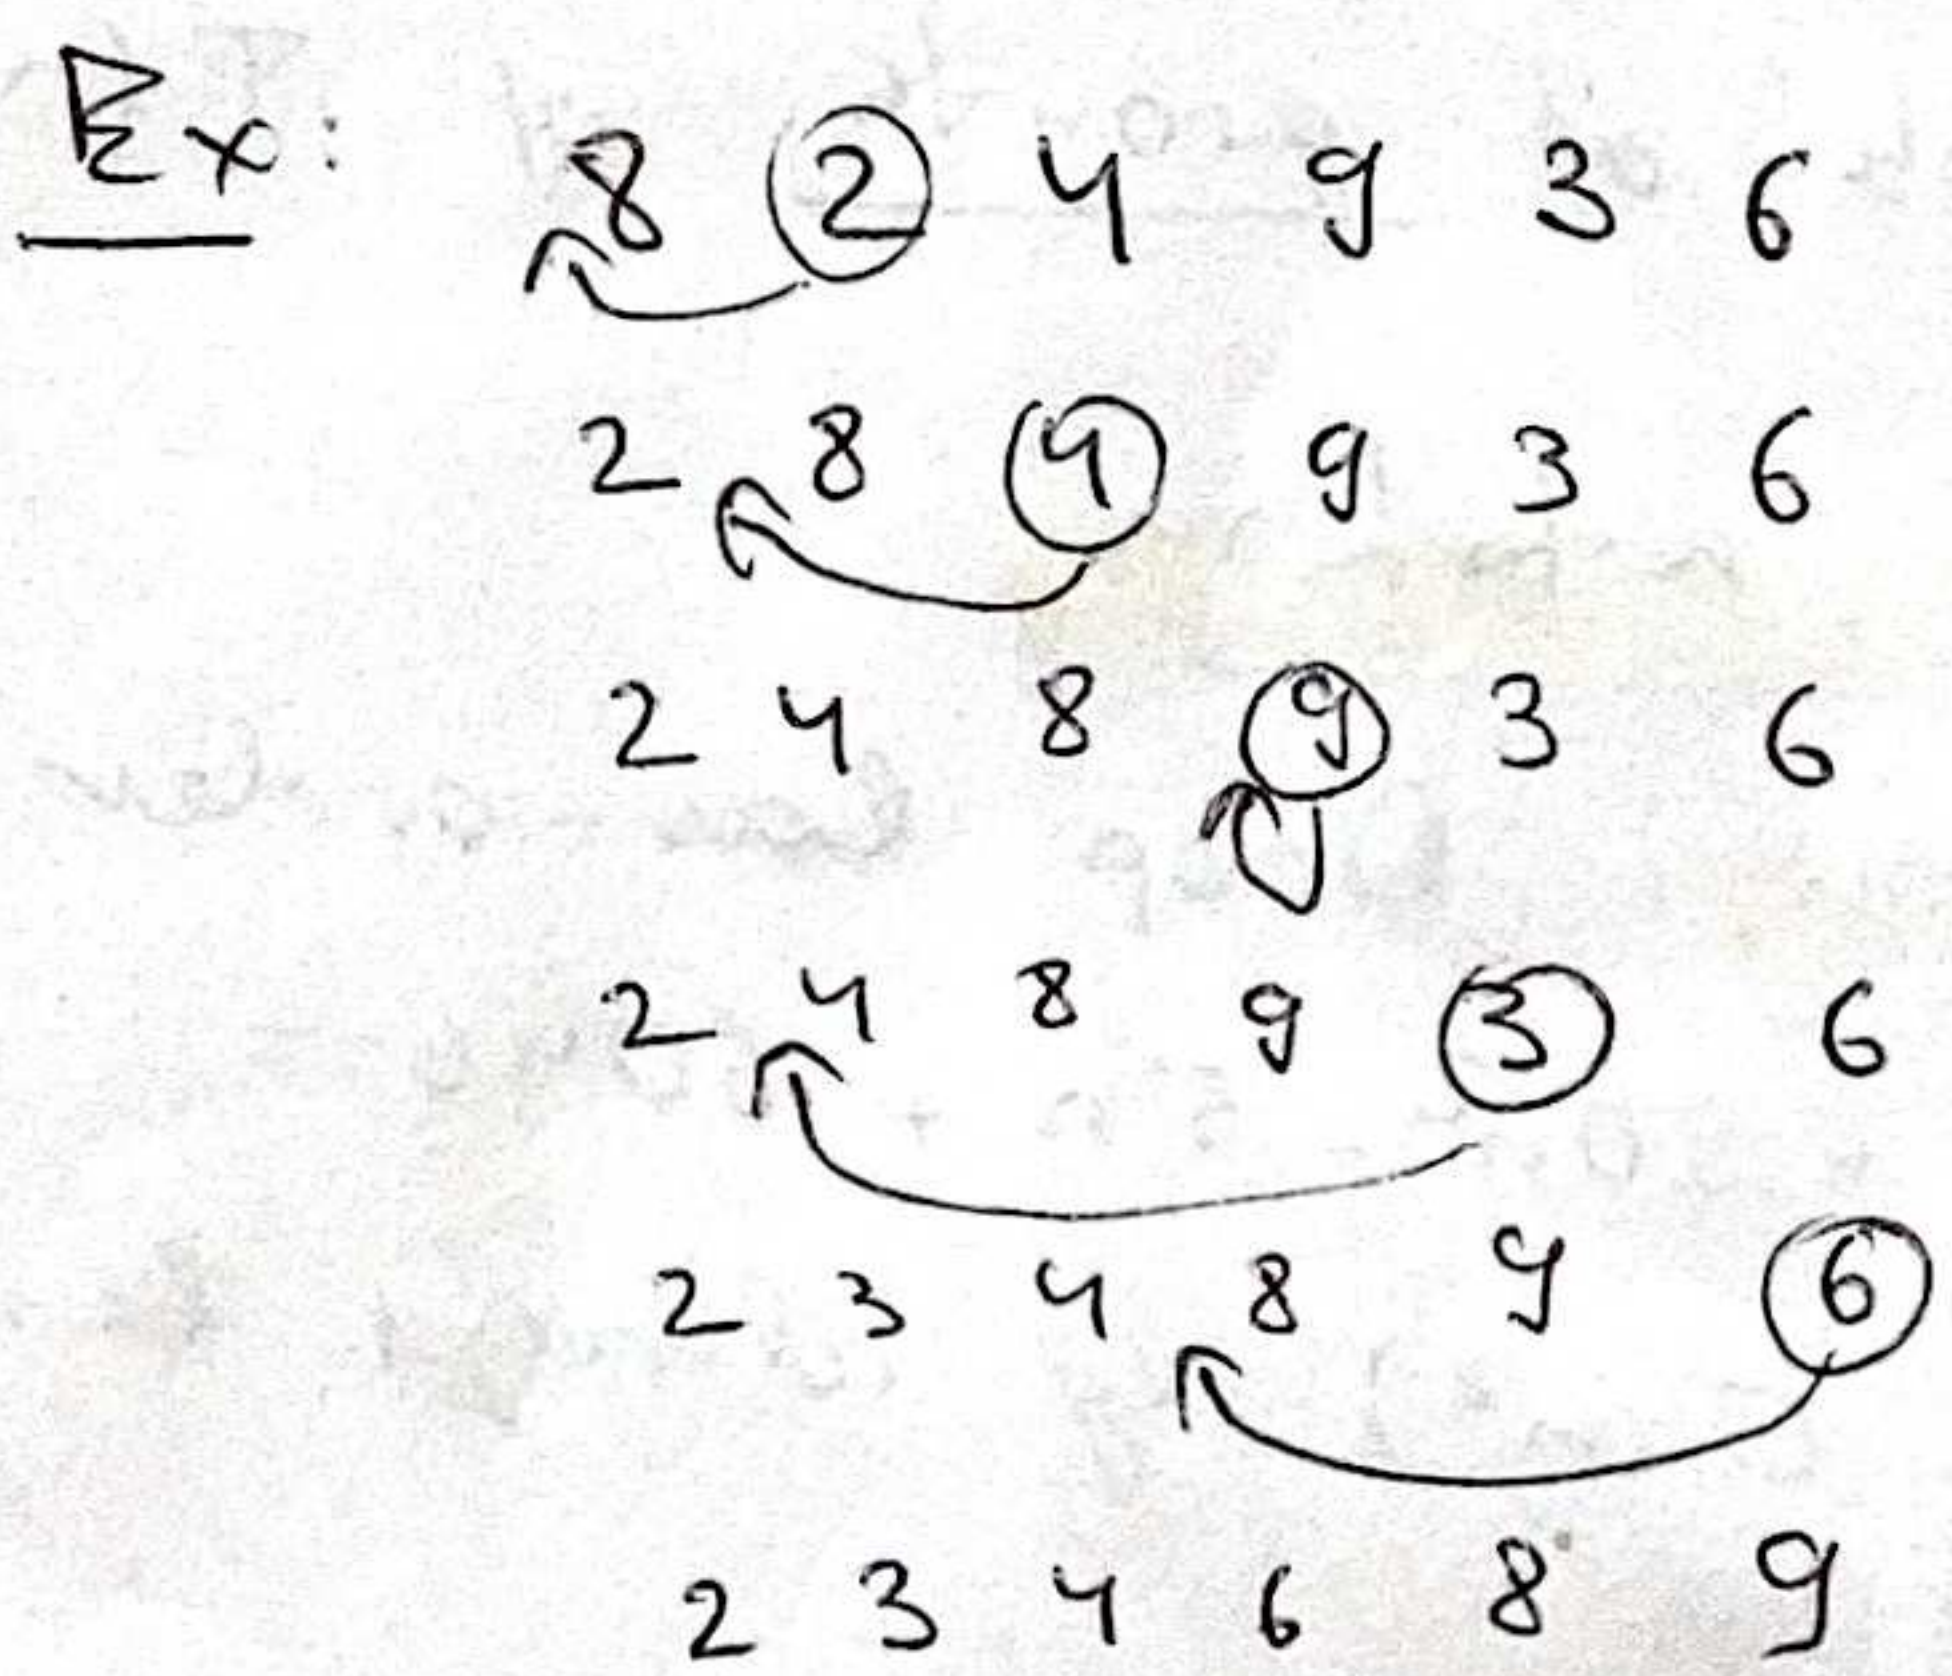 Ex: 8 2 4 9 3 6
2 8 4 9 3 6
2 4 8 9 3 6
2 4 8 9 3 6
2 3 4 8 9 6
2 3 4 6 8 9